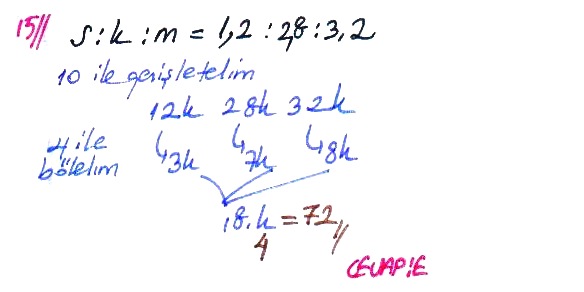 15// s:k:m = 1,2 : 2,8 : 3,2
10 ile genişletelim
12k 28k 32k
4 ile bölelim
↳3k ↳7k ↳8k
18.k = 72//
4
CEVAP:E